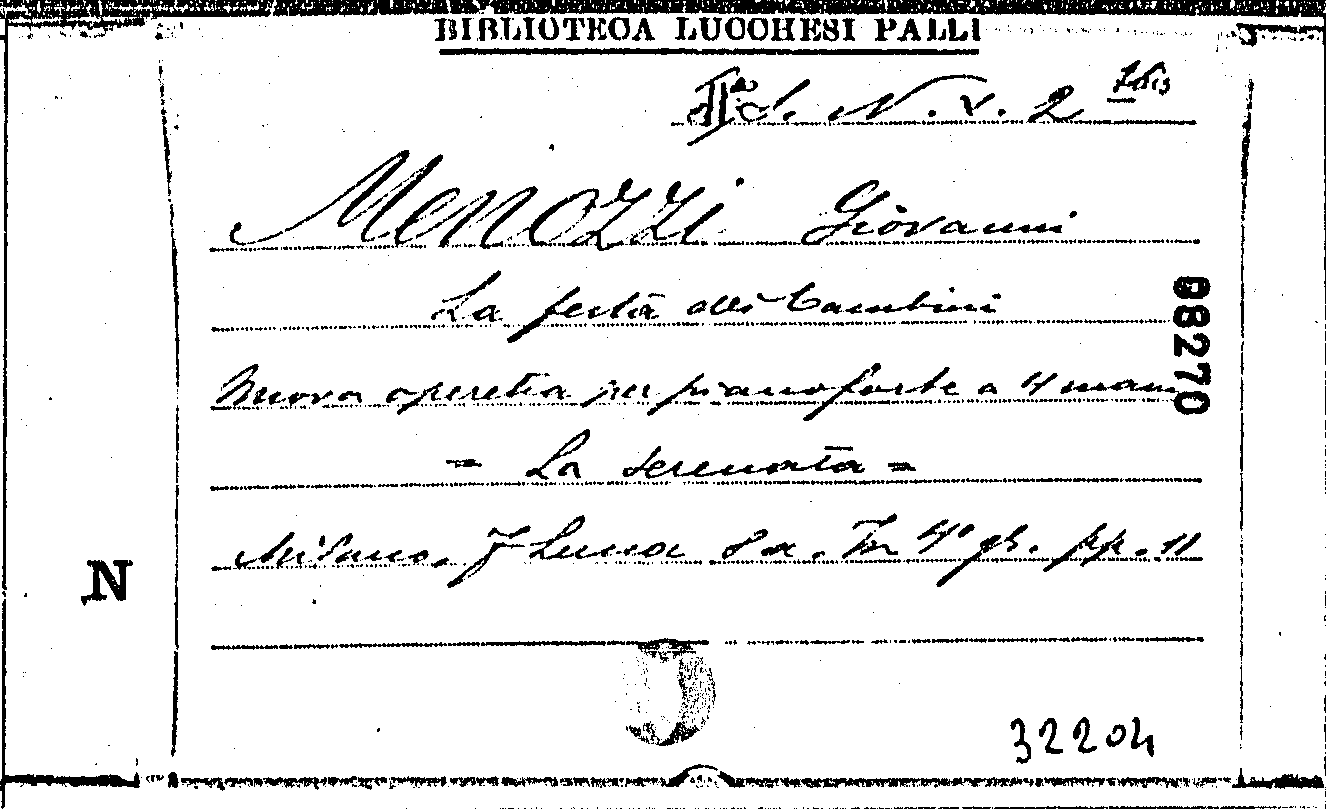 BIBLIOTECA LUCCHESI PALLI
N. V. 2
MENOZZI Giovanni
La festa dei bambini
88270
Nuova operetta per pianoforte a 4 mani
= La serenata =
Milano, F Lucca s.a. In 4° gr. pp. 11
N
32204